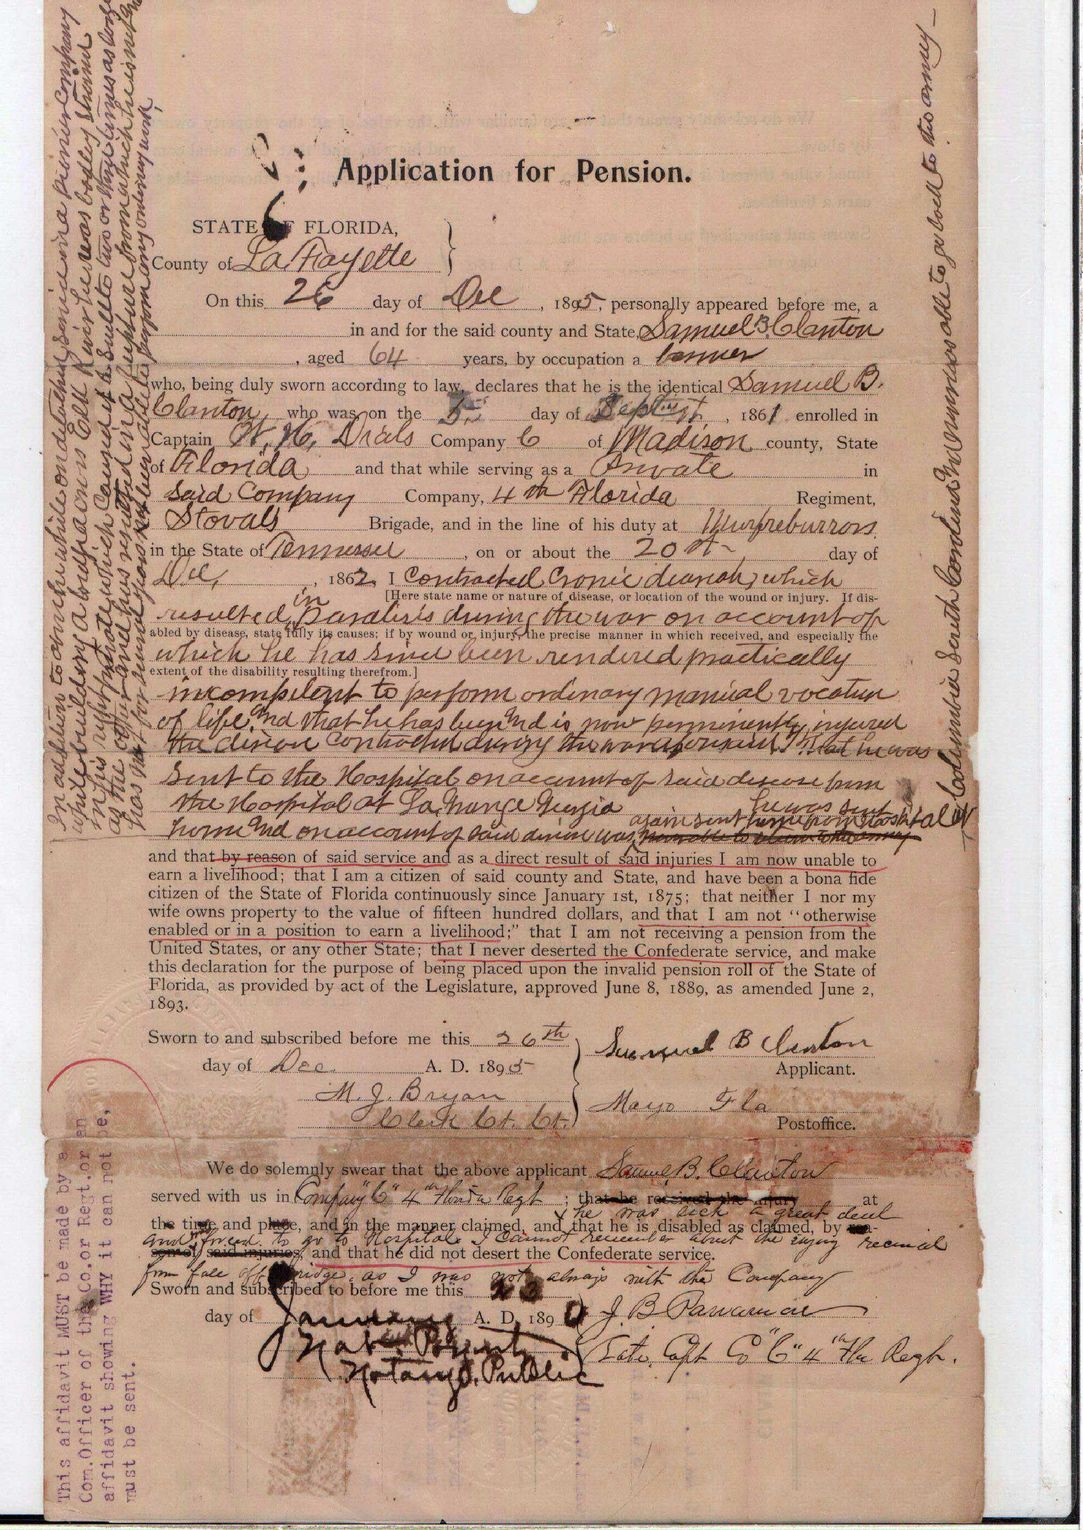 Application for Pension.
STATE OF FLORIDA,
County of La Fayette
On this 26 day of Dec , 1895, personally appeared before me, a
in and for the said county and State, Samuel B. Clanton
, aged 64 years, by occupation a
who, being duly sworn according to law, declares that he is the identical Samuel B.
Clanton, who was on the day of , 1861 enrolled in
Captain W. H. Dials Company C of Madison county, State
of Florida and that while serving as a Private in
Said Company Company, 4th Florida Regiment,
Stovals Brigade, and in the line of his duty at
in the State of Tennessee , on or about the 20th day of
Dec, , 1862 I contracted Cronic diareah, which
[Here state name or nature of disease, or location of the wound or injury. If dis-
resulted in paralisis during the war on account of
abled by disease, state fully its causes; if by wound or injury, the precise manner in which received, and especially the
which he has since been rendered practically
extent of the disability resulting therefrom.]
incompitent to perform ordinary manual vocation
of life and that he has been and is now perminently injured
the diseas contracted during the war that he was
Sent to the Hospital on account of said disease from
the Hospital at LaGrange Georgia he was sent
home and on account of said disease was again sent home from Hospital at
Columbia South Carolina and never was able to go back to the army—
and that by reason of said service and as a direct result of said injuries I am now unable to
earn a livelihood; that I am a citizen of said county and State, and have been a bona fide
citizen of the State of Florida continuously since January 1st, 1875; that neither I nor my
wife owns property to the value of fifteen hundred dollars, and that I am not "otherwise
enabled or in a position to earn a livelihood;" that I am not receiving a pension from the
United States, or any other State; that I never deserted the Confederate service, and make
this declaration for the purpose of being placed upon the invalid pension roll of the State of
Florida, as provided by act of the Legislature, approved June 8, 1889, as amended June 2,
1893.
Sworn to and subscribed before me this 26th
day of Dec. A. D. 1895
M. J. Bryan
Clerk Ct. Ct.
Samuel B Clanton
Applicant.
Mayo Fla
Postoffice.
We do solemnly swear that the above applicant Samuel B. Clanton
served with us in Company "C" 4th Florida Regt ; that he received the injury at
he was sick a great deal
the time and place, and in the manner claimed, and that he is disabled as claimed, by rea-
and forced to go to Hospital I cannot remember about the injury received
son of said injuries, and that he did not desert the Confederate service.
from fale off bridge, as I was not always with the Company
Sworn and subscribed to before me this
day of January A. D. 189
Notary Public
J. B.
Late Capt Co "C" 4th Fla Regt.
In addition to above while on detached Service in a pionier Company
while building a bridge across Elk River he was bodley strained
in his right which Causes it to Swell to two or three times as large
as the other and has resulted in a rupture from which he is
has not for several years been able to perform any ordinary work,
This affidavit MUST be made by a
Com. Officer of the Co. or Regt. or an
affidavit showing WHY it can not be,
must be sent.